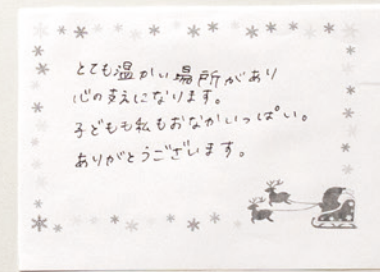 とても温かい場所があり
心の支えになります。
子どもも私もおなかいっぱい。
ありがとうございます。